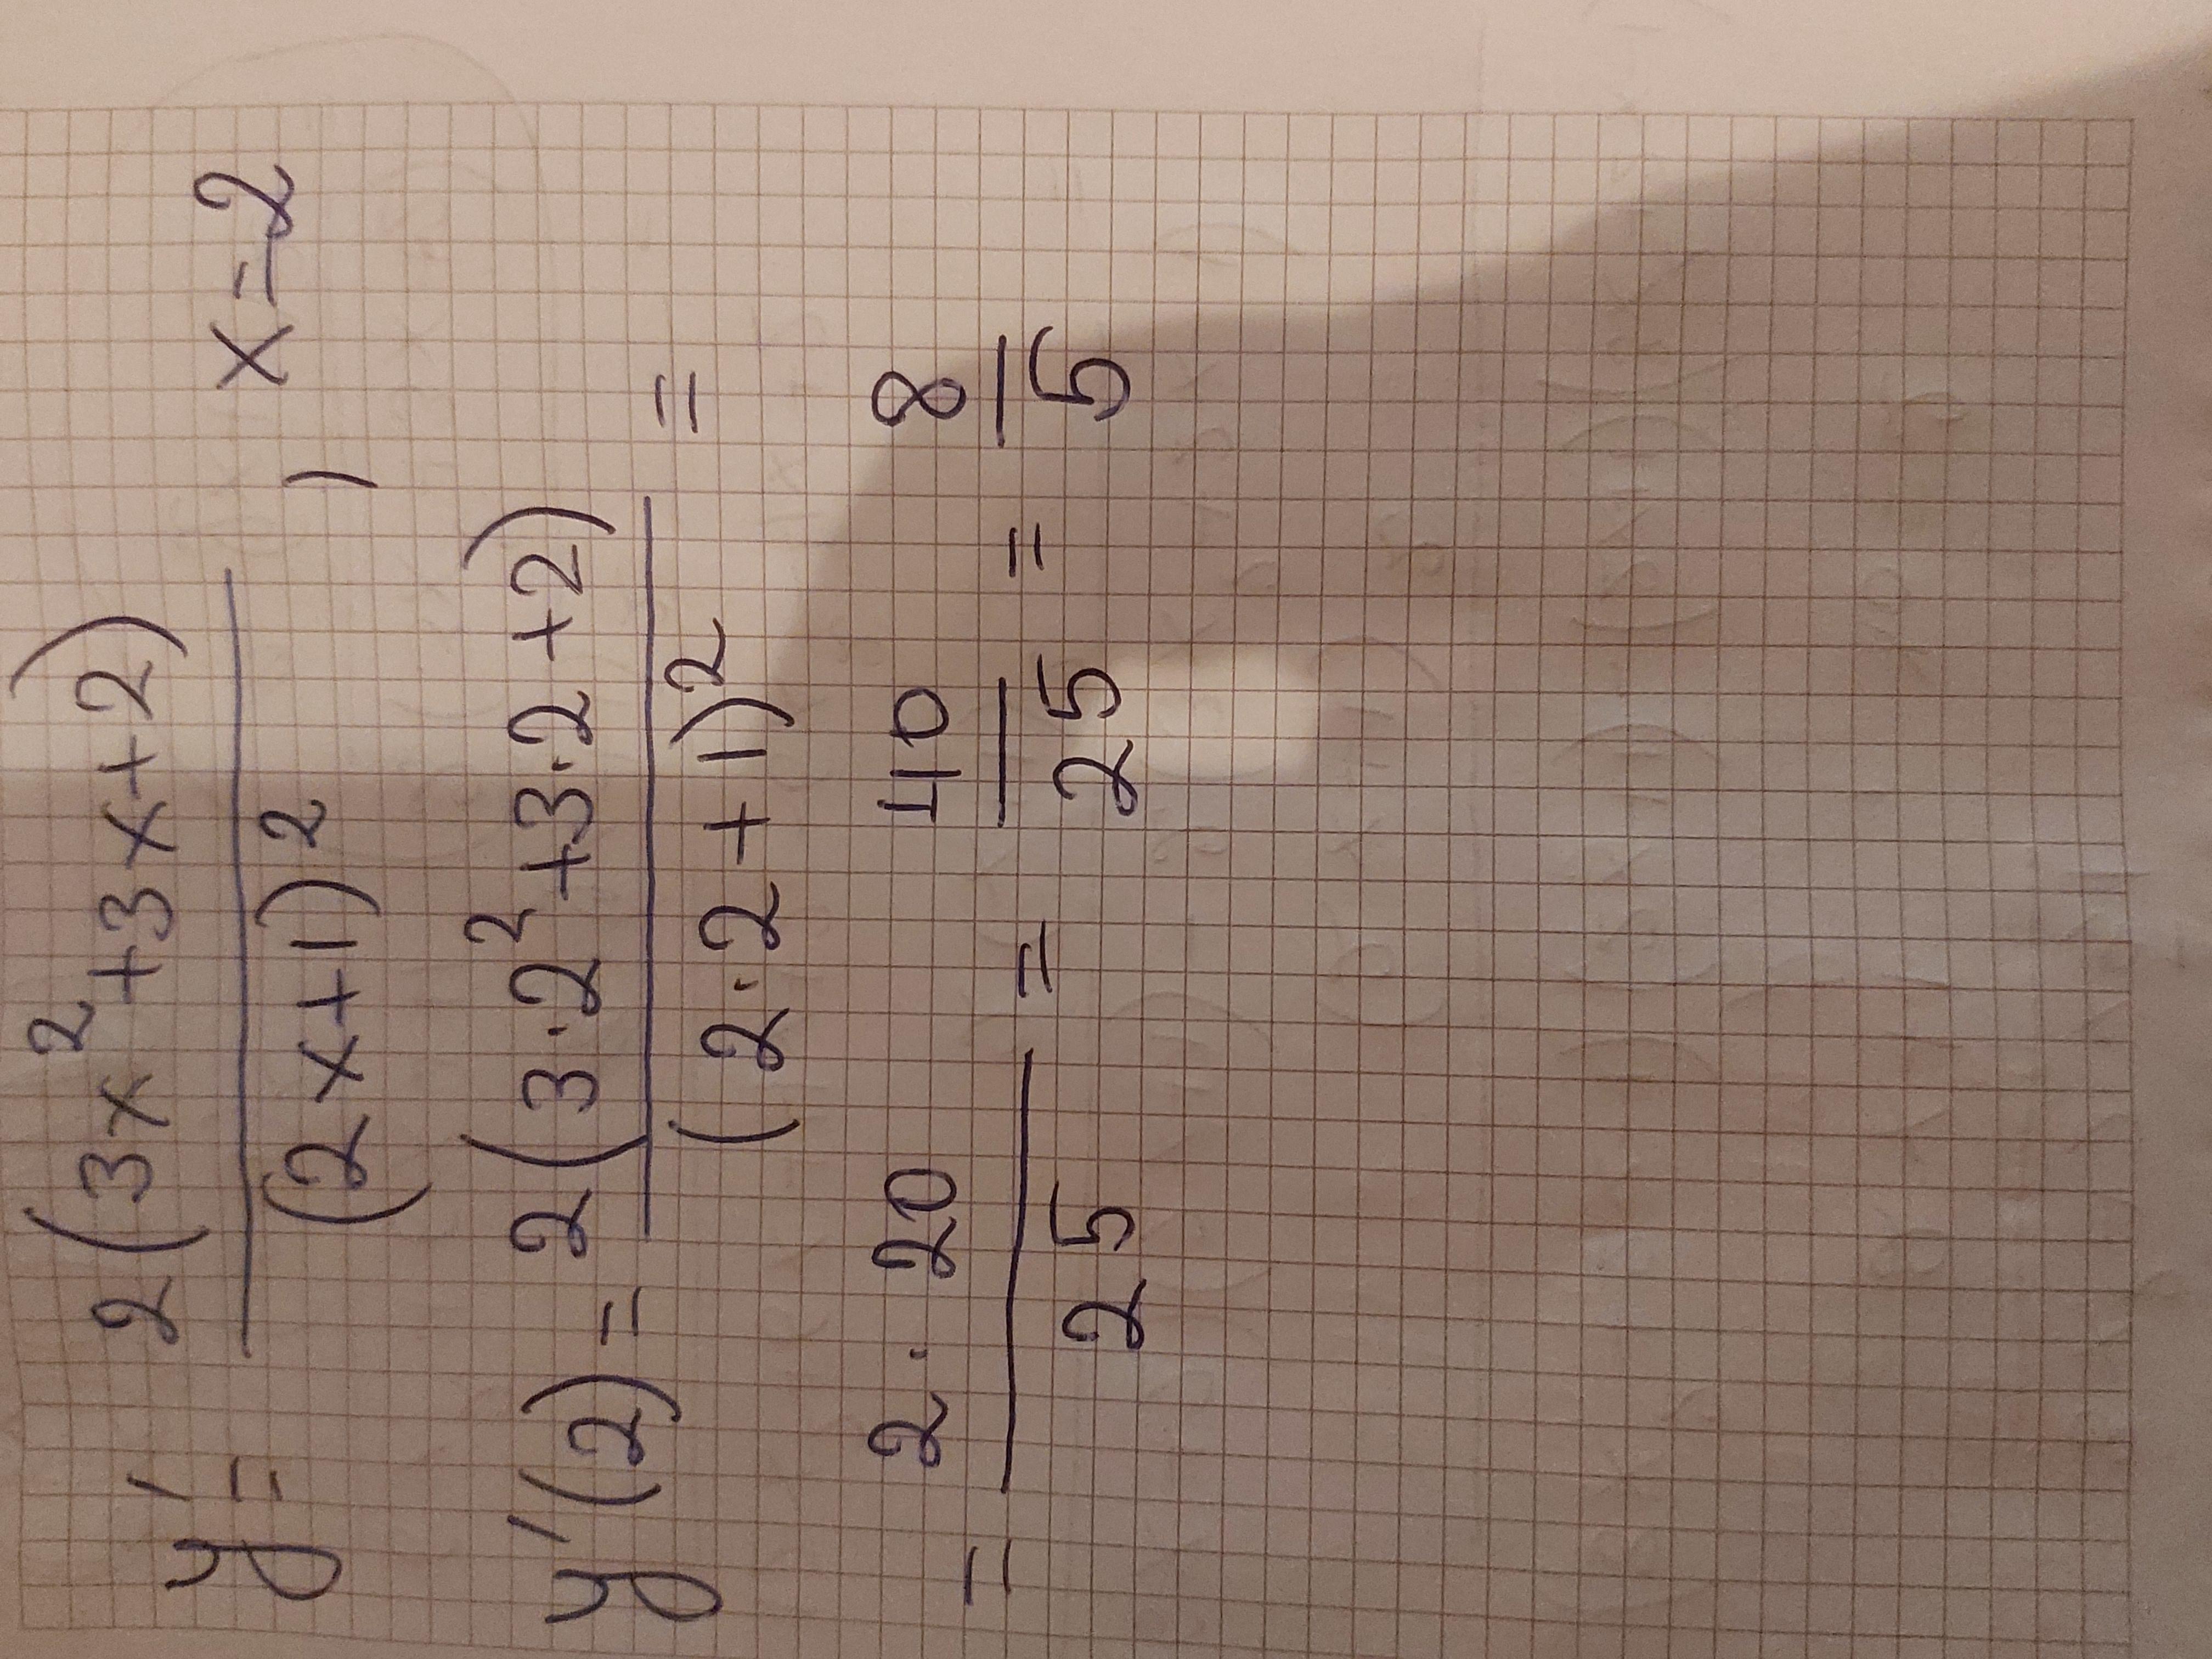 y' = 2(3x²+3x+2) / (2x+1)² , x=2
y'(2) = 2(3·2²+3·2+2) / (2·2+1)² =
= 2·20 / 25 = 40 / 25 = 8 / 5